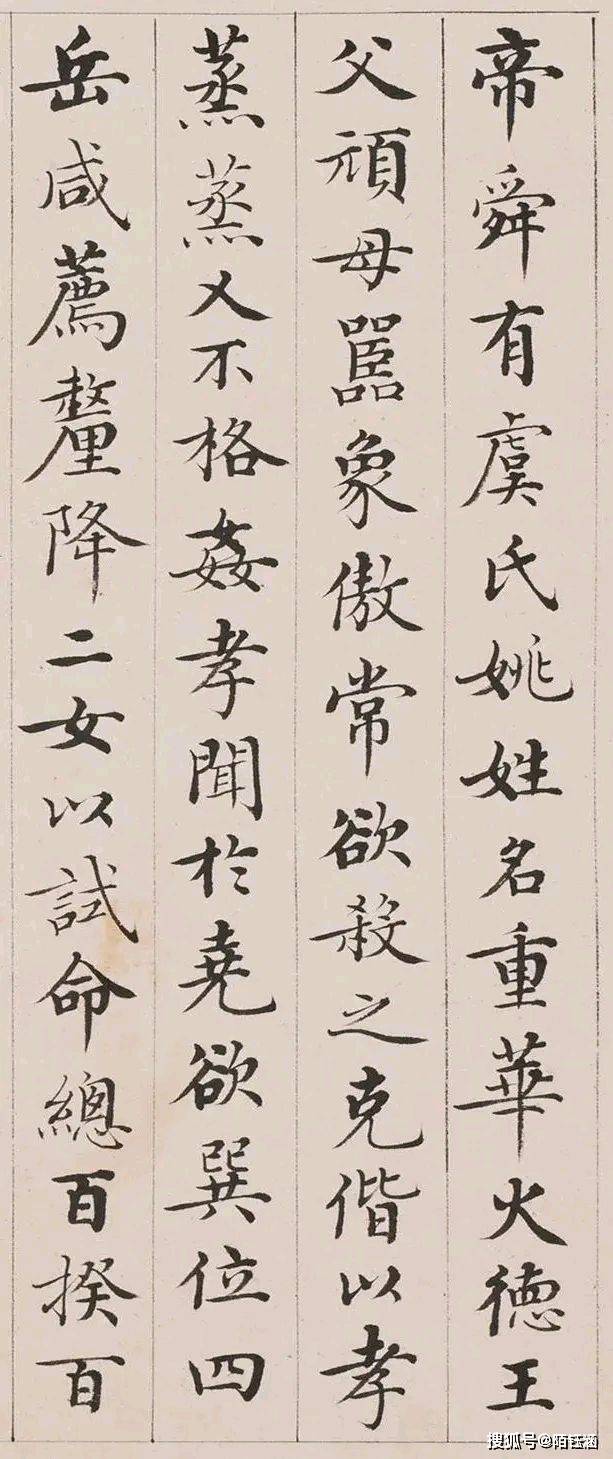 帝舜有虞氏姚姓名重華火德王
父頑母嚚象傲常欲殺之克偕以孝
蒸蒸乂不格姦孝聞於堯欲巽位四
岳咸薦釐降二女以試命總百揆百
搜狐号@陌钰涵